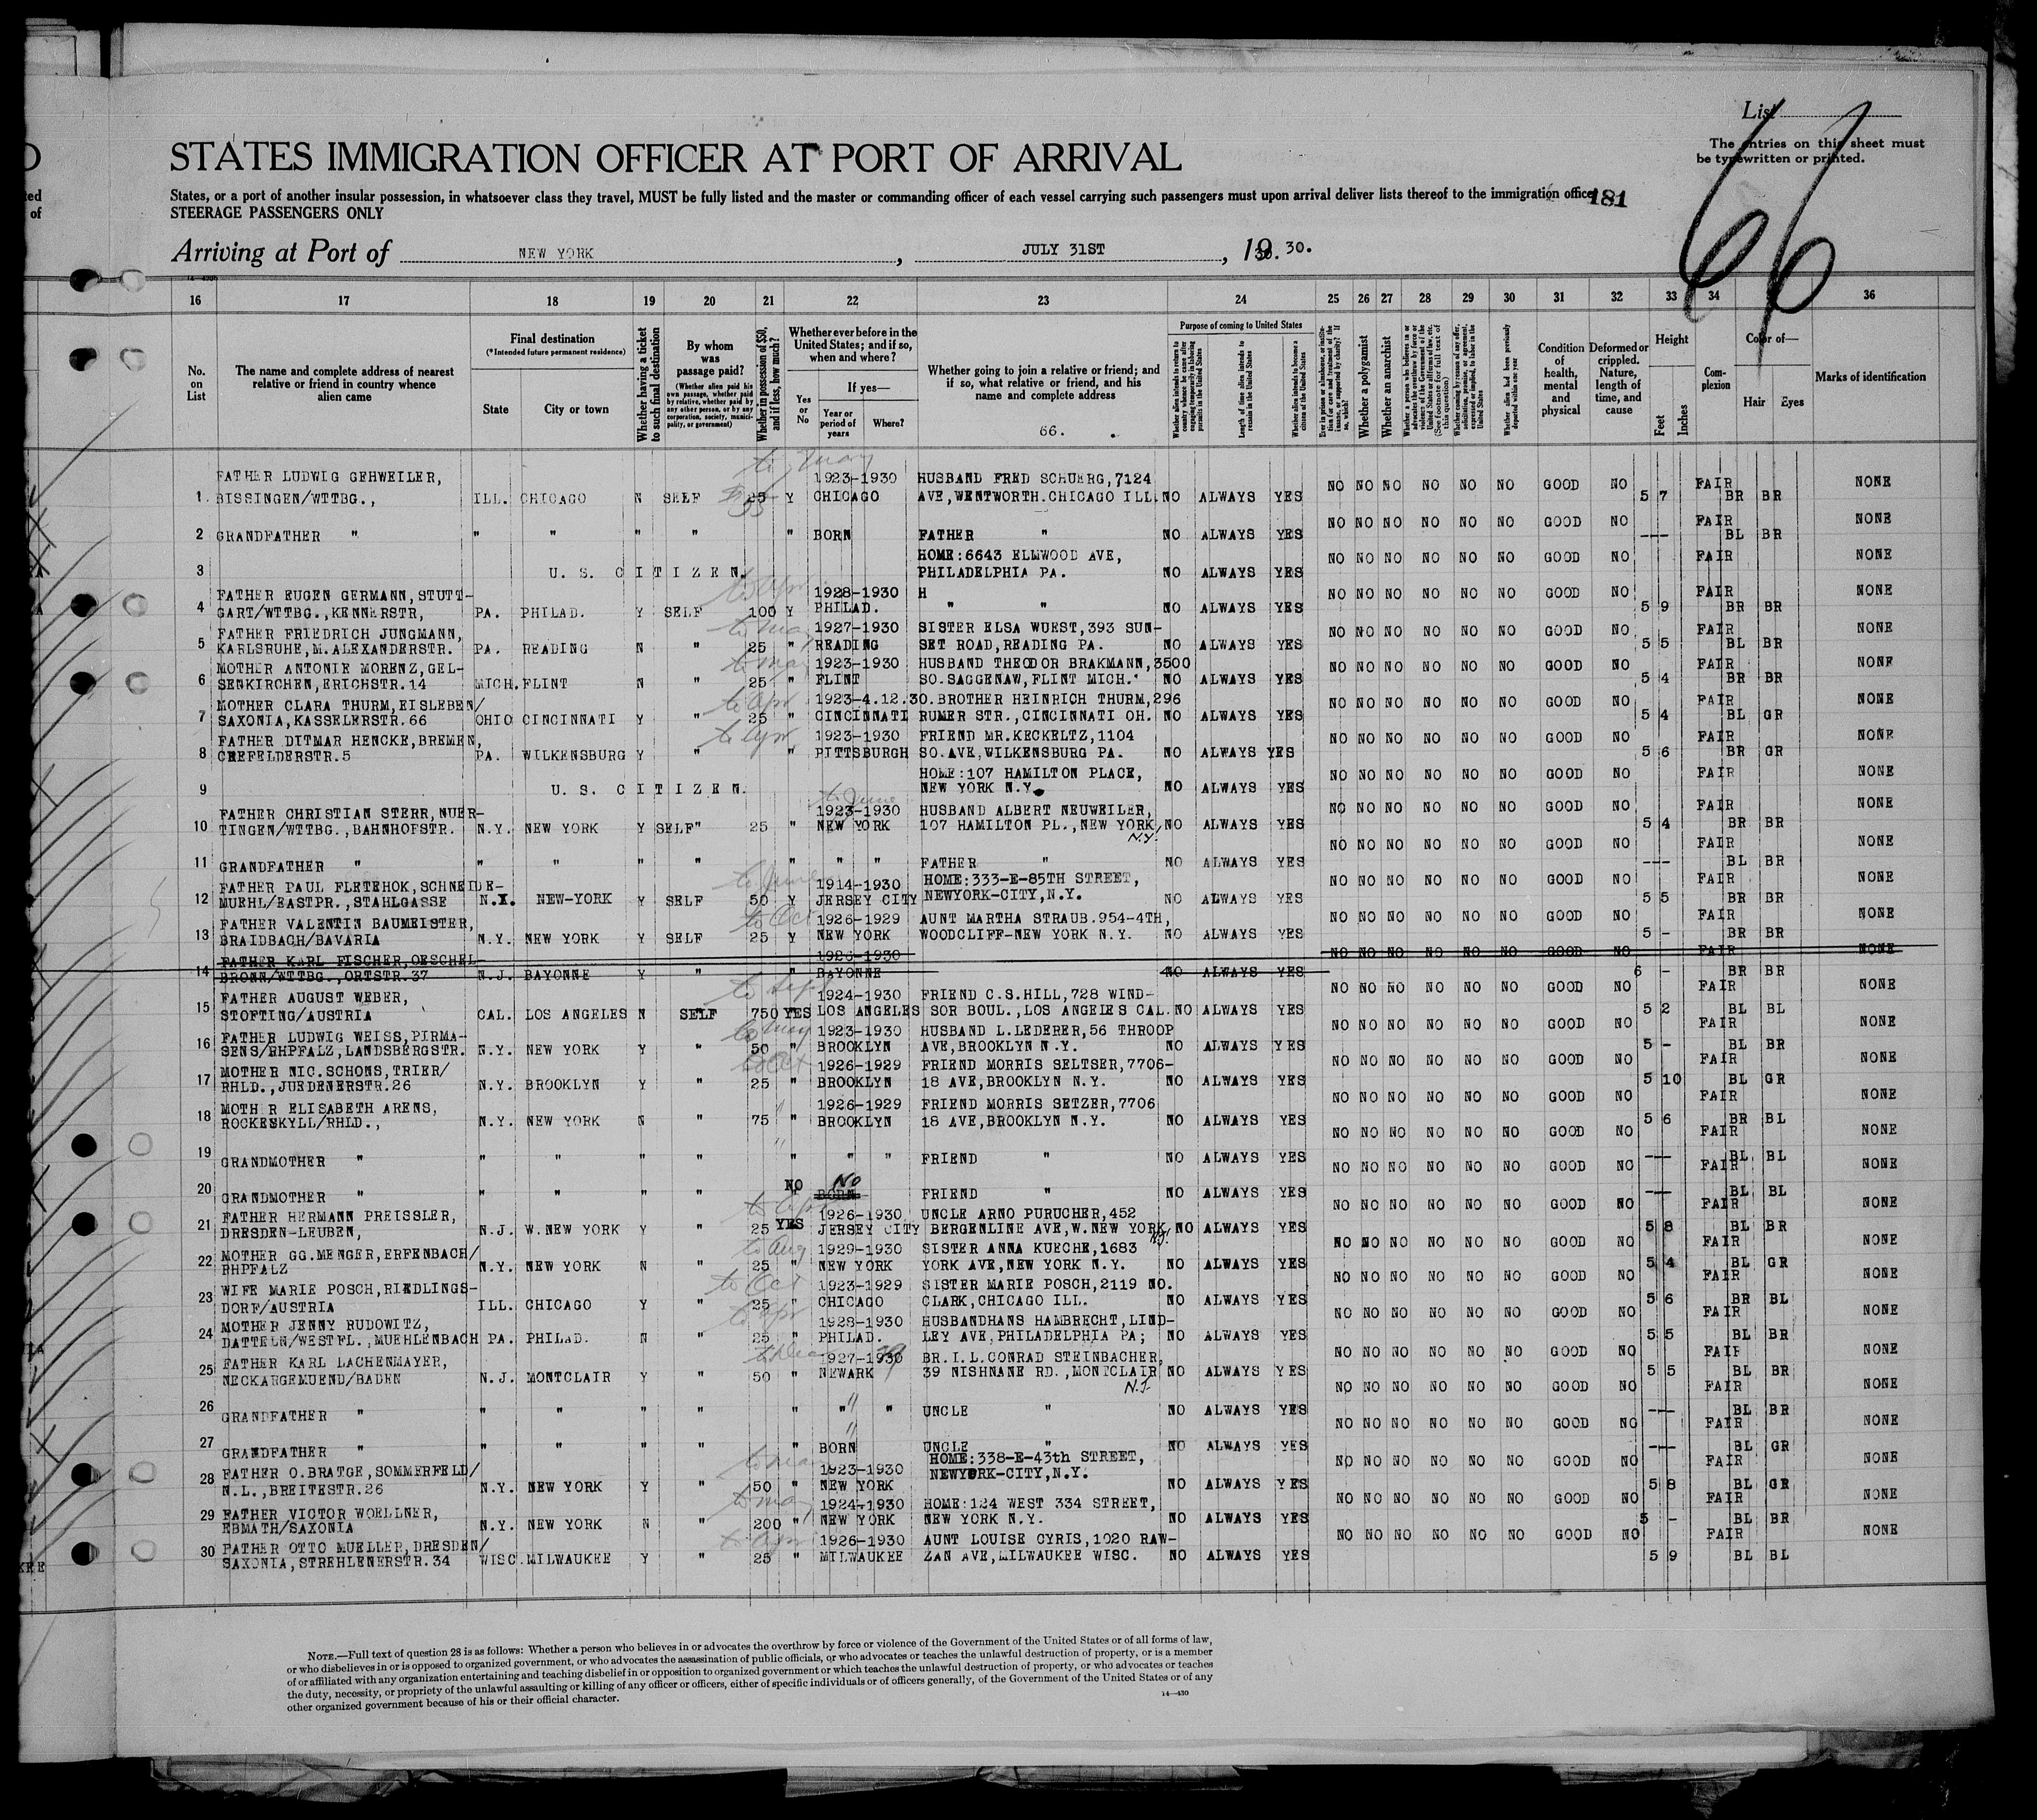 List
66
The entries on this sheet must
be typewritten or printed.
STATES IMMIGRATION OFFICER AT PORT OF ARRIVAL
States, or a port of another insular possession, in whatsoever class they travel, MUST be fully listed and the master or commanding officer of each vessel carrying such passengers must upon arrival deliver lists thereof to the immigration officer
181
STEERAGE PASSENGERS ONLY
Arriving at Port of NEW YORK , JULY 31ST , 19 30.
16 17 18 19 20 21 22 23 24 25 26 27 28 29 30 31 32 33 34 36
No. on List
The name and complete address of nearest relative or friend in country whence alien came
Final destination
(*Intended future permanent residence)
State
City or town
Whether having a ticket to such final destination
By whom was passage paid?
(Whether alien paid his own passage, whether paid by relative, whether paid by any other person, or by any corporation, society, municipality, or government)
Whether in possession of $50, and if less, how much?
Whether ever before in the United States; and if so, when and where?
Yes or No
If yes—
Year or period of years
Where?
Whether going to join a relative or friend; and if so, what relative or friend, and his name and complete address
66.
Purpose of coming to United States
Length of time alien intends to remain in the United States
Whether alien intends to become a citizen of the United States
Whether a polygamist
Whether an anarchist
Condition of health, mental and physical
Deformed or crippled. Nature, length of time, and cause
Height
Feet
Inches
Complexion
Color of—
Hair
Eyes
Marks of identification
FATHER LUDWIG GEHWEILER, 1923-1930 HUSBAND FRED SCHUERG,7124
1 BISSINGEN/WTTBG., ILL. CHICAGO N SELF 25 Y CHICAGO AVE,WENTWORTH.CHICAGO ILL. NO ALWAYS YES NO NO NO NO NO NO GOOD NO 5 7 FAIR BR BR NONE
2 GRANDFATHER " " " " " " BORN FATHER " NO ALWAYS YES NO NO NO NO NO NO GOOD NO --- FAIR BL BR NONE
HOME:6643 ELMWOOD AVE,
3 U. S. CITIZEN. PHILADELPHIA PA. NO ALWAYS YES NO NO NO NO NO NO GOOD NO FAIR NONE
FATHER EUGEN GERMANN,STUTT- 1928-1930 H
4 GART/WTTBG.,KENNERSTR, PA. PHILAD. Y SELF 100 Y PHILAD. " " NO ALWAYS YES NO NO NO NO NO NO GOOD NO 5 9 FAIR BR BR NONE
FATHER FRIEDRICH JUNGMANN, 1927-1930 SISTER ELSA WUEST,393 SUN-
5 KARLSRUHE,M.ALEXANDERSTR. PA. READING N " 25 " READING SET ROAD,READING PA. NO ALWAYS YES NO NO NO NO NO NO GOOD NO 5 5 FAIR BL BR NONE
MOTHER ANTONIE MORENZ,GEL- 1923-1930 HUSBAND THEODOR BRAKMANN,3500
6 SENKIRCHEN,ERICHSTR.14 MICH. FLINT N " 25 " FLINT SO.SAGGENAW,FLINT MICH. NO ALWAYS YES NO NO NO NO NO NO GOOD NO 5 4 FAIR BR BR NONE
MOTHER CLARA THURM,EISLEBEN/ 1923-4.12.30. BROTHER HEINRICH THURM,296
7 SAXONIA,KASSELERSTR.66 OHIO CINCINNATI Y " 25 " CINCINNATI RUMER STR.,CINCINNATI OH. NO ALWAYS YES NO NO NO NO NO NO GOOD NO 5 4 FAIR BL GR NONE
FATHER DITMAR HENCKE,BREMEN, 1923-1930 FRIEND MR.KECKELTZ,1104
8 CREFELDERSTR.5 PA. WILKENSBURG Y " " PITTSBURGH SO.AVE,WILKENSBURG PA. NO ALWAYS YES NO NO NO NO NO NO GOOD NO 5 6 FAIR BR GR NONE
HOME:107 HAMILTON PLACE,
9 U. S. CITIZEN. NEW YORK N.Y. NO ALWAYS YES NO NO NO NO NO NO GOOD NO FAIR NONE
to June
FATHER CHRISTIAN STERR,NUER- 1923-1930 HUSBAND ALBERT NEUWEILER,
10 TINGEN/WTTBG.,BAHNHOFSTR. N.Y. NEW YORK Y SELF" 25 " NEW YORK 107 HAMILTON PL.,NEW YORK, N.Y. NO ALWAYS YES NO NO NO NO NO NO GOOD NO 5 4 FAIR BR BR NONE
11 GRANDFATHER " " " " " " " " FATHER " NO ALWAYS YES NO NO NO NO NO NO GOOD NO --- FAIR BL BR NONE
to June
FATHER PAUL FLETEHOK,SCHNEIDE- 1914-1930 HOME:333-E-85TH STREET,
12 MUEHL/EASTPR.,STAHLGASSE N.Y. NEW-YORK Y SELF 50 Y JERSEY CITY NEWYORK-CITY,N.Y. NO ALWAYS YES NO NO NO NO NO NO GOOD NO 5 5 FAIR BR BR NONE
to Oct
FATHER VALENTIN BAUMEISTER, 1926-1929 AUNT MARTHA STRAUB.954-4TH,
13 BRAIDBACH/BAVARIA N.Y. NEW YORK Y SELF 25 Y NEW YORK WOODCLIFF-NEW YORK N.Y. NO ALWAYS YES NO NO NO NO NO NO GOOD NO 5 - FAIR BR BR NONE
FATHER KARL FISCHER,OESCHEL- 1926-1930
14 BRONN/WTTBG.,ORTSTR.37 N.J. BAYONNE Y " " BAYONNE NO ALWAYS YES NO NO NO NO NO NO GOOD NO 6 - FAIR BR BR NONE
to Sept
FATHER AUGUST WEBER, 1924-1930 FRIEND C.S.HILL,728 WIND-
15 STOFTING/AUSTRIA CAL. LOS ANGELES N SELF 750 YES LOS ANGELES SOR BOUL.,LOS ANGELES CAL. NO ALWAYS YES NO NO NO NO NO NO GOOD NO 5 2 FAIR BL BL NONE
to May
FATHER LUDWIG WEISS,PIRMA- 1923-1930 HUSBAND L.LEDERER,56 THROOP
16 SENS/RHPFALZ,LANDSBERGSTR. N.Y. NEW YORK Y " 50 " BROOKLYN AVE,BROOKLYN N.Y. NO ALWAYS YES NO NO NO NO NO NO GOOD NO 5 - FAIR BL BR NONE
to Oct
MOTHER NIC.SCHONS,TRIER/ 1926-1929 FRIEND MORRIS SELTSER,7706-
17 RHLD.,JUEDENERSTR.26 N.Y. BROOKLYN Y " 25 " BROOKLYN 18 AVE,BROOKLYN N.Y. NO ALWAYS YES NO NO NO NO NO NO GOOD NO 5 10 FAIR BL GR NONE
MOTHER ELISABETH ARENS, 1926-1929 FRIEND MORRIS SETZER,7706
18 ROCKESKYLL/RHLD., N.Y. NEW YORK N " 75 " BROOKLYN 18 AVE,BROOKLYN N.Y. NO ALWAYS YES NO NO NO NO NO NO GOOD NO 5 6 FAIR BR BL NONE
19 GRANDMOTHER " " " " " " " " FRIEND " NO ALWAYS YES NO NO NO NO NO NO GOOD NO --- FAIR BL BL NONE
20 GRANDMOTHER " " " " " NO BORN No FRIEND " NO ALWAYS YES NO NO NO NO NO NO GOOD NO --- FAIR BL BL NONE
FATHER HERMANN PREISSLER, 1926-1930 UNCLE ARNO PURUCHER,452
21 DRESDEN-LEUBEN, N.J. W.NEW YORK Y " 25 YES JERSEY CITY BERGENLINE AVE,W.NEW YORK, N.J. NO ALWAYS YES NO NO NO NO NO NO GOOD NO 5 8 FAIR BL BR NONE
to Aug
MOTHER GG.MENGER,ERFENBACH/ 1929-1930 SISTER ANNA KUECHE,1683
22 RHPFALZ N.Y. NEW YORK N " 25 " NEW YORK YORK AVE,NEW YORK N.Y. NO ALWAYS YES NO NO NO NO NO NO GOOD NO 5 4 FAIR BL GR NONE
to Oct
WIFE MARIE POSCH,RIEDLINGS- 1923-1929 SISTER MARIE POSCH,2119 NO.
23 DORF/AUSTRIA ILL. CHICAGO Y " 25 " CHICAGO CLARK,CHICAGO ILL. NO ALWAYS YES NO NO NO NO NO NO GOOD NO 5 6 FAIR BR BL NONE
MOTHER JENNY RUDOWITZ, 1928-1930 HUSBANDHANS HAMBRECHT,LIND-
24 DATTELN/WESTFL.,MUEHLENBACH PA. PHILAD. N " 25 " PHILAD. LEY AVE,PHILADELPHIA PA; NO ALWAYS YES NO NO NO NO NO NO GOOD NO 5 5 FAIR BL BR NONE
FATHER KARL LACHENMAYER, 1927-1930 29 BR.I.L.CONRAD STEINBACHER,
25 NECKARGEMUEND/BADEN N.J. MONTCLAIR Y " 50 " NEWARK 39 NISHNANE RD.,MONTCLAIR N.J. NO ALWAYS YES NO NO NO NO NO NO GOOD NO 5 5 FAIR BL BR NONE
26 GRANDFATHER " " " " " " " " UNCLE " NO ALWAYS YES NO NO NO NO NO NO GOOD NO --- FAIR BL BR NONE
27 GRANDFATHER " " " " " " BORN UNCLE " NO ALWAYS YES NO NO NO NO NO NO GOOD NO --- FAIR BL GR NONE
HOME:338-E-43th STREET,
28 FATHER O.BRATGE,SOMMERFELD/ 1923-1930 NEWYORK-CITY,N.Y.
N.L.,BREITESTR.26 N.Y. NEW YORK Y " 50 " NEW YORK NO ALWAYS YES NO NO NO NO NO NO GOOD NO 5 8 FAIR BL GR NONE
to May
29 FATHER VICTOR WOELLNER, 1924-1930 HOME:124 WEST 334 STREET,
EBMATH/SAXONIA N.Y. NEW YORK N " 200 " NEW YORK NEW YORK N.Y. NO ALWAYS YES NO NO NO NO NO NO GOOD NO 5 - FAIR BL BR NONE
30 FATHER OTTO MUELLER,DRESDEN/ 1926-1930 AUNT LOUISE CYRIS,1020 RAW-
SAXONIA,STREHLENERSTR.34 WISC. MILWAUKEE Y " 25 " MILWAUKEE ZAN AVE,MILWAUKEE WISC. NO ALWAYS YES NO NO NO NO NO NO GOOD NO 5 9 FAIR BL BL NONE
NOTE.—Full text of question 28 is as follows: Whether a person who believes in or advocates the overthrow by force or violence of the Government of the United States or of all forms of law,
or who disbelieves in or is opposed to organized government, or who advocates the assassination of public officials, or who advocates or teaches the unlawful destruction of property, or is a member
of or affiliated with any organization entertaining and teaching disbelief in or opposition to organized government or which teaches the unlawful destruction of property, or who advocates or teaches
the duty, necessity, or propriety of the unlawful assaulting or killing of any officer or officers, either of specific individuals or of officers generally, of the Government of the United States or of any
other organized government because of his or their official character.
14—430